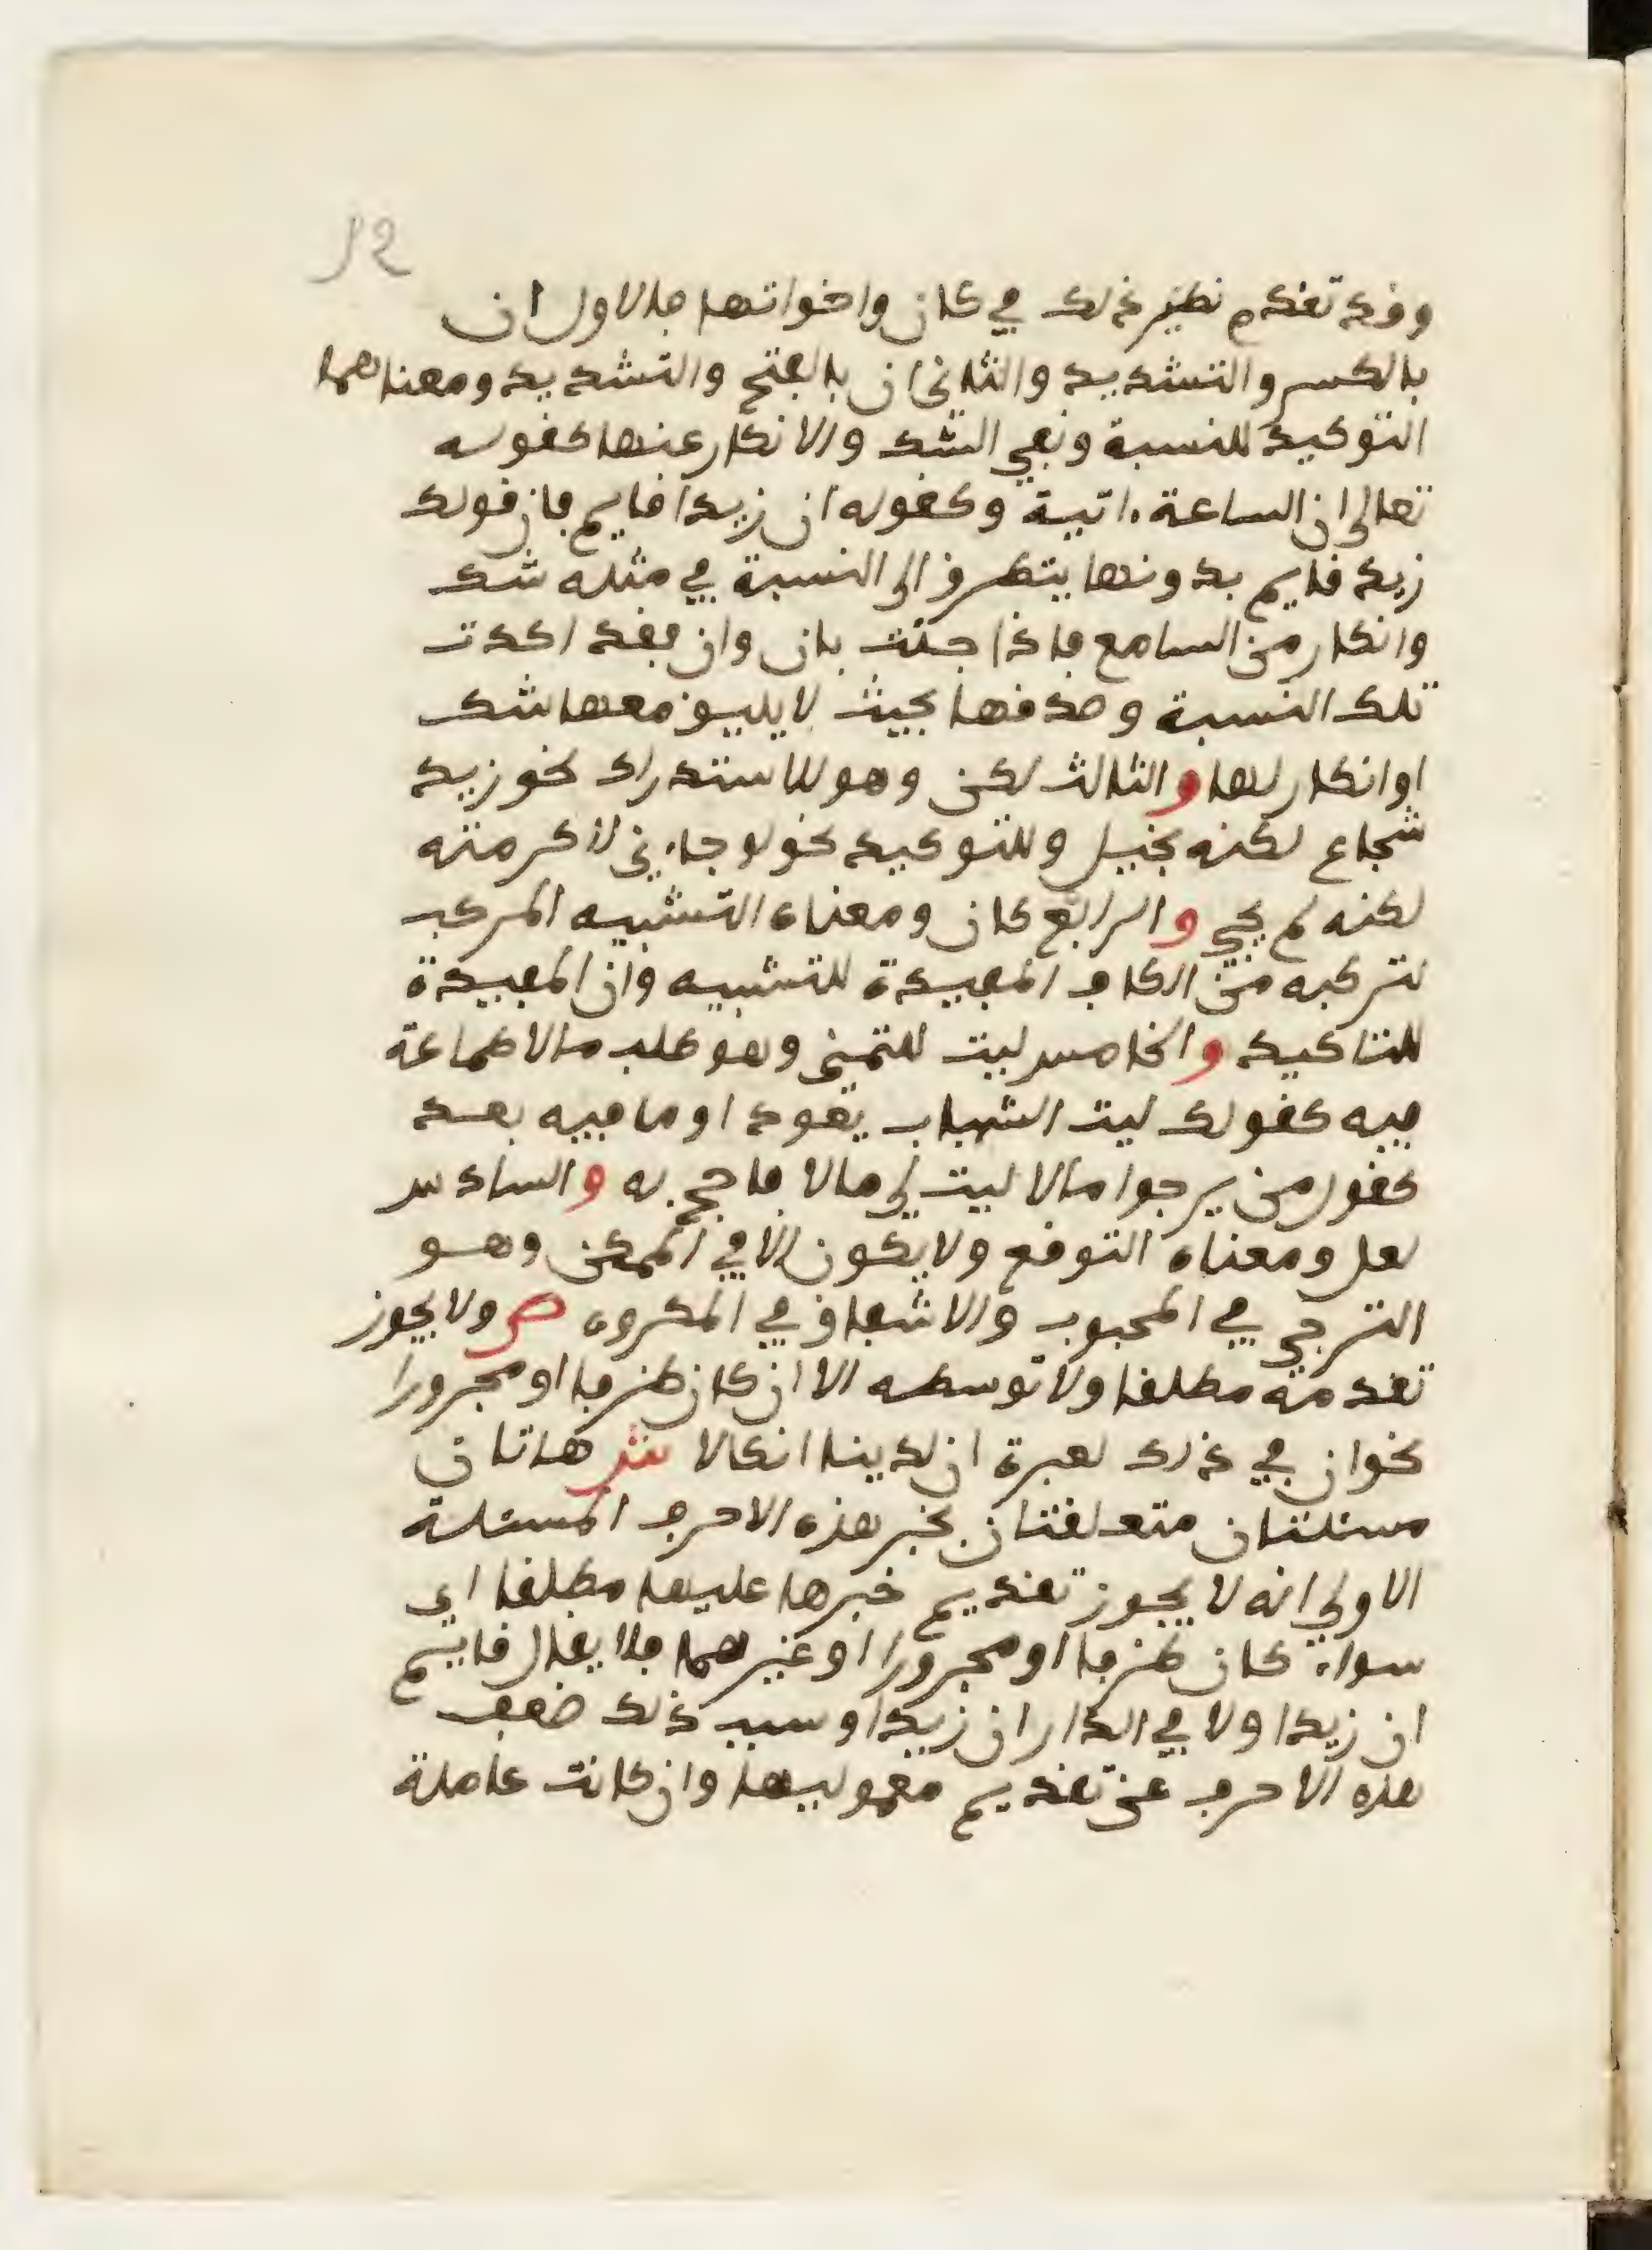 12
وقد تقدم نظير ذلك في كان واخواتها فالاول ان
بالكسر والتشديد والثاني ان بالفتح والتشديد ومعناهما
التوكيد للنسبة ونفي الشك والانكار عنها كقوله
تعالى ان الساعة ءاتية وكقوله ان زيدا قايم فان قولك
زيد قايم بدونها يتطرق الى النسبة في مثله شك
وانكار من السامع فاذا جئت بان وان فقد اكدت
تلك النسبة وصدقها بحيث لا يليق معها شك
او انكار لها والثالث لكن وهو للاستدراك نحو زيد
شجاع لكنه بخيل وللتوكيد نحو لو جاءني لاكرمته
لكنه لم يجي والرابع كان ومعناه التشبيه المركب
لتركبه من الكاف المفيدة للتشبيه وان المفيدة
للتاكيد والخامس ليت للتمني وهو طلب ما لا طماعة
فيه كقولك ليت الشباب يعود او ما فيه بعد
كقول من يرجوا مالا ليت لي مالا فاحج به والسادس
لعل ومعناه التوقع ولا يكون الا في الممكن وهو
الترجي في المحبوب والاشفاق في المكروه ص ولا يجوز
تقدمه مطلقا ولا توسطه الا ان كان ظرفا او مجرورا
نحو ان في ذلك لعبرة ان لدينا انكالا ش هاتان
مسئلتان متعلقتان بخبر هذه الاحرف المسئلة
الاولى انه لا يجوز تقديم خبرها عليها مطلقا اي
سواء كان ظرفا او مجرورا او غيرهما فلا يقال قايم
ان زيدا ولا في الدار ان زيدا وسبب ذلك ضعف
هذه الاحرف عن تقديم معموليها وان كانت عاملة